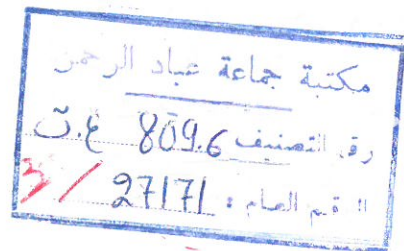 مكتبة جماعة عباد الرحمن
رقم التصنيف 809.6 ع.ت
الرقم العام : 27171
3/